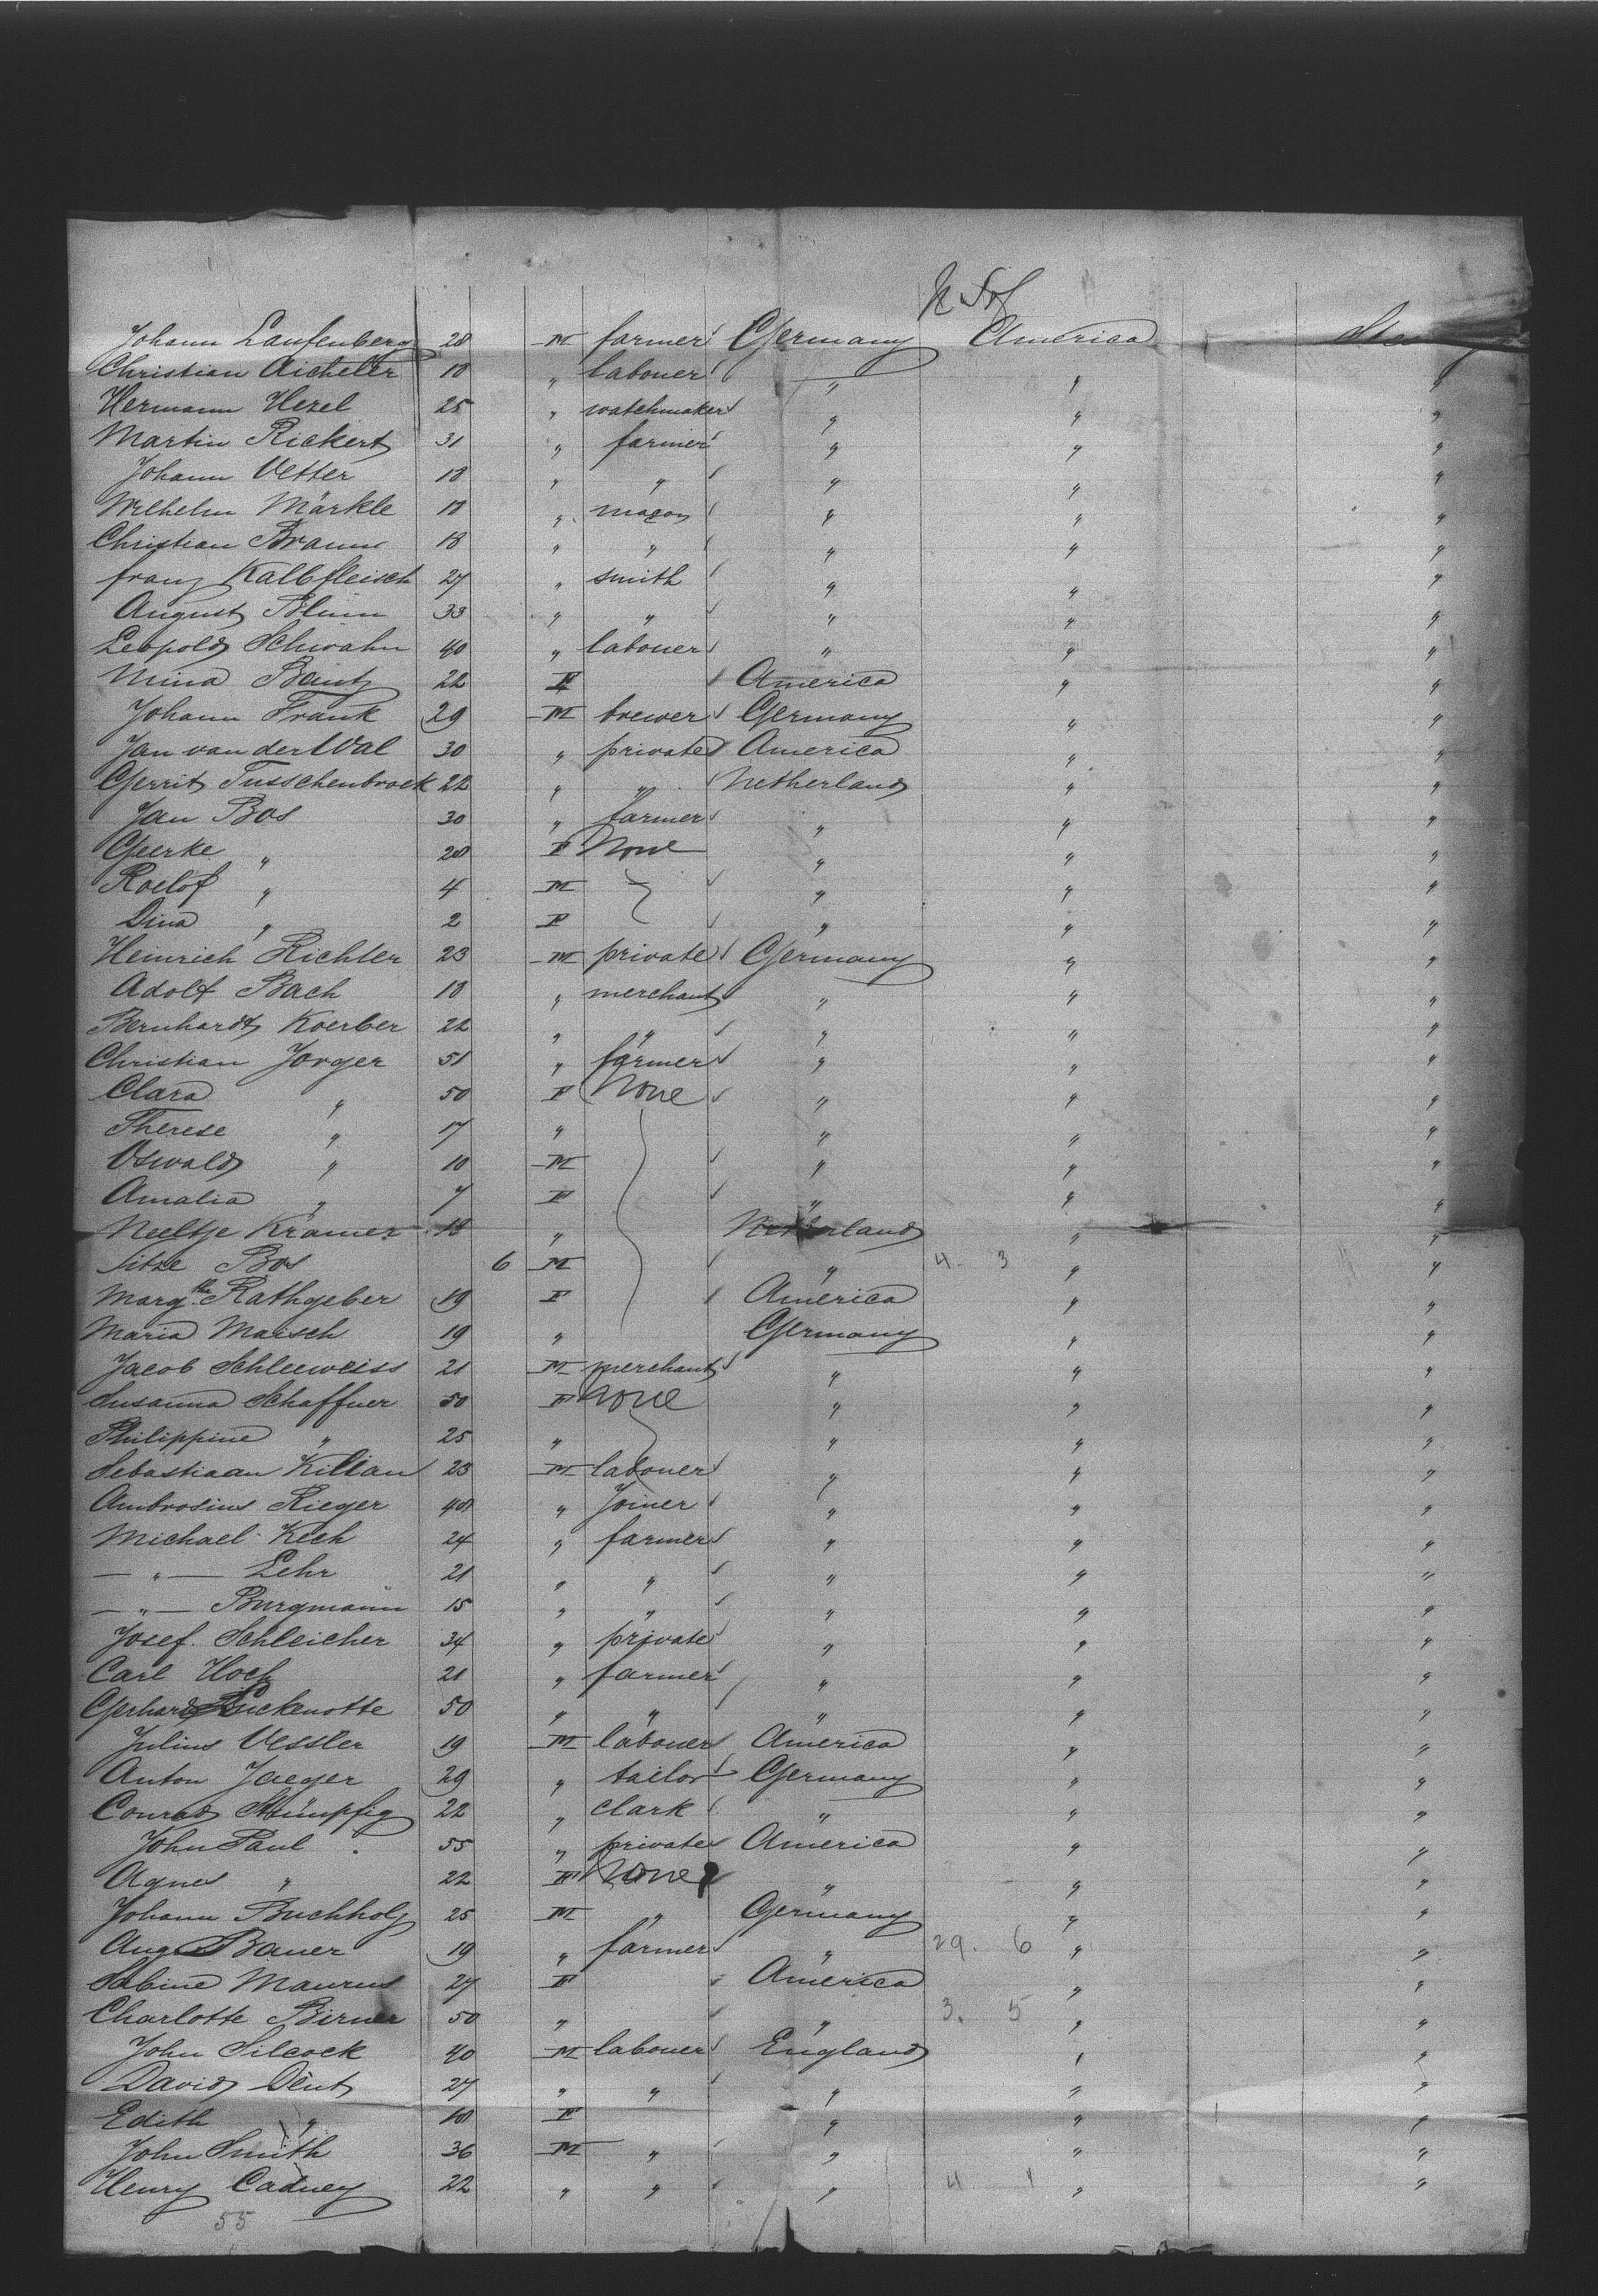 Johann Laufenberg 28 M farmer Germany America
Christian Aicheler 18 " labouer " " "
Hermann Hezel 25 " watchmaker " " "
Martin Rickert 31 " farmer " " "
Johann Vetter 18 " " " " "
Wilhelm Märkle 18 " mason " " "
Christian Braun 18 " " " " "
Franz Kalbfleisch 27 " smith " " "
August Blum 33 " " " " "
Leopold Schwahn 40 " labouer " " "
Mina Bantz 22 F America " "
Johann Frank 29 M brewer Germany " "
Jan van der Wal 30 " private America " "
Gerrit Tusschenbroek 22 " " Netherland " "
Jan Bos 30 " farmer " " "
Geerke " 28 F None " " "
Roelof " 4 M " " "
Dina " 2 F " " "
Heinrich Richter 23 M private Germany " "
Adolf Bach 18 " merchant " " "
Bernhardt Koerber 22 " " " " "
Christian Jorger 51 " farmer " " "
Clara " 50 F None " " "
Therese " 17 " " " "
Oswald " 10 M " " "
Amalia " 7 F " " "
Neeltje Kramer 18 " Netherland " "
Sitze Bos 6 M " 4. 3 " "
Margth. Rathgeber 19 F America " "
Maria Maisch 19 " Germany " "
Jacob Schleeweiss 21 M merchant " " "
Susanna Schaffner 50 F None " " "
Philippine " 25 " " " "
Sebastiaan Kilian 23 M labouer " " "
Ambrosius Rieger 48 " Joiner " " "
Michael Kech 24 " farmer " " "
— " — Lehr 21 " " " " "
— " — Burgmann 15 " " " " "
Josef. Schleicher 34 " private " " "
Carl Hock 21 " farmer " " "
Gerhard Luckenotte 50 " " " " "
Julius Vessler 19 M labouer America " "
Anton Jaeger 29 " tailor Germany " "
Conrad Stümpfig 22 " clark " " "
John Paul 55 " private America " "
Agnes " 22 F None " " "
Johann Buchholz 25 M " Germany " "
Aug Bauer 19 " farmer " 29. 6 " "
Sabine Maurus 27 F America " "
Charlotte Birner 50 " " 3. 5 " "
John Silcock 40 M labouer England " "
David Dent 27 " " " " "
Edith " 18 F " " "
John Smith 36 M " " " "
Henry Cadney 22 " " " 4 1 " "
55